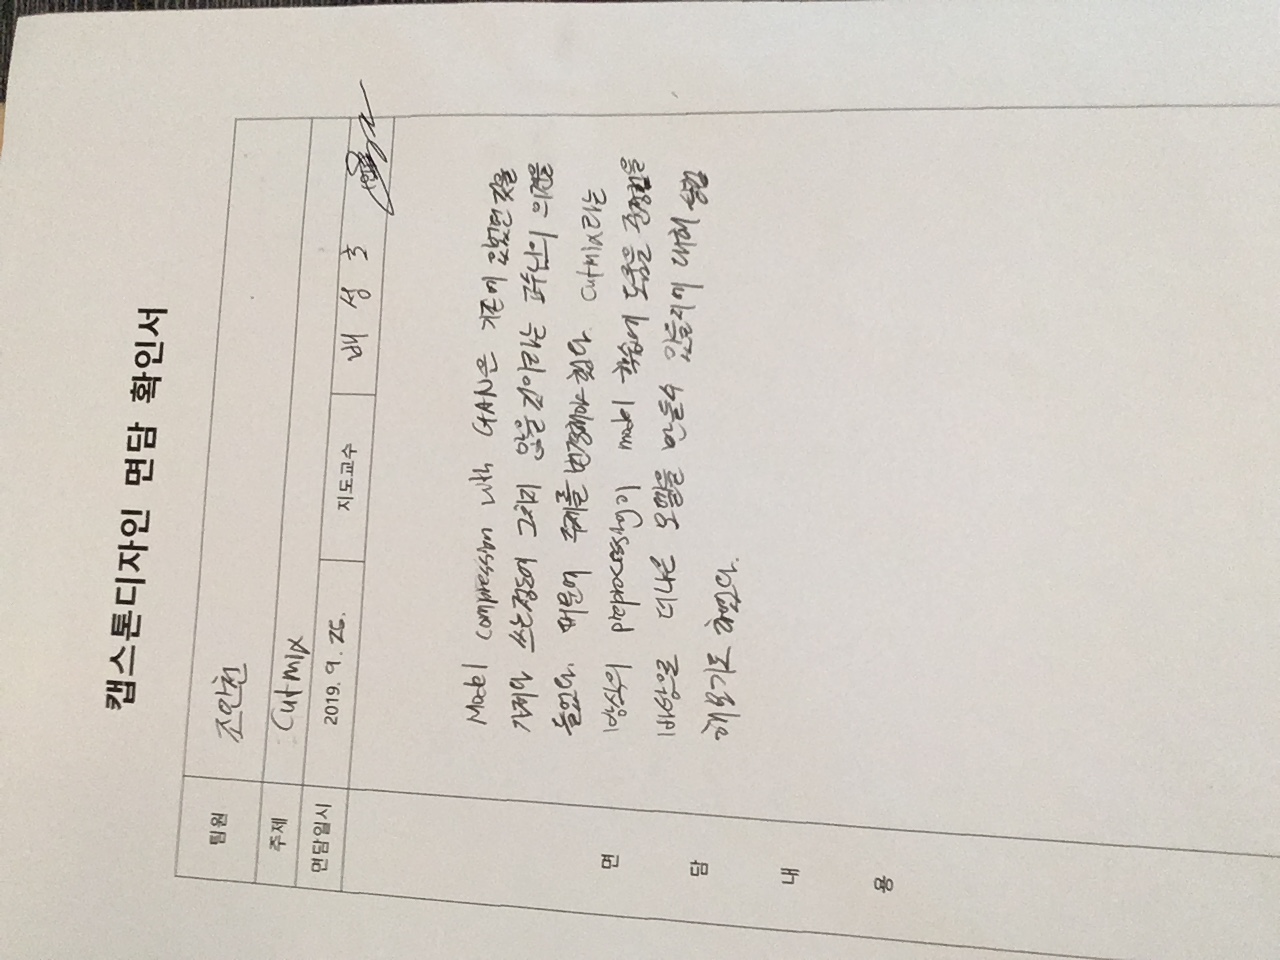 캡스톤디자인 면담 확인서
팀원 조안천
주제 Cutmix
면담일시 2019. 9. 25. 지도교수 배성호 (인)
면담내용
Model compression with GAN은 기존에 있었던 것을
가져와 쓰는정도에 그치지 않을것이라는 교수님의 의견을
들었다. 때문에 주제를 변경해야 했다. Cutmix라는
방식의 preprocessing이 model 학습에 도움을 준경험을
바탕으로 더나은 모델을 만들수 있을지에 대해 실험
해보기로 하였다.